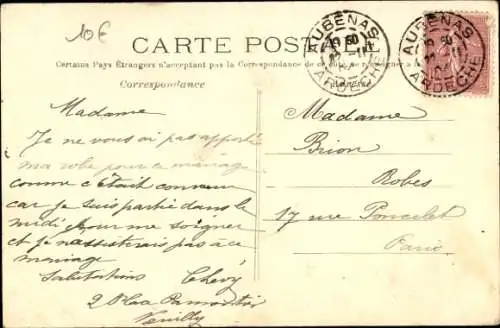 10€
CARTE POSTALE
Certains Pays Étrangers n'acceptant pas la Correspondance de ce côté, se renseigner à la Poste
Correspondance
AUBENAS
ARDÈCHE
AUBENAS
ARDÈCHE
Madame
Je ne vous ai pas apporté
ma robe pour ce mariage
comme c'était convenu
car je suis partie dans le
midi pour me soigner
et je n'assisterais pas à ce
mariage
Salutations
Neuilly
Madame
Brion
Robes
17 rue Poncelet
Paris